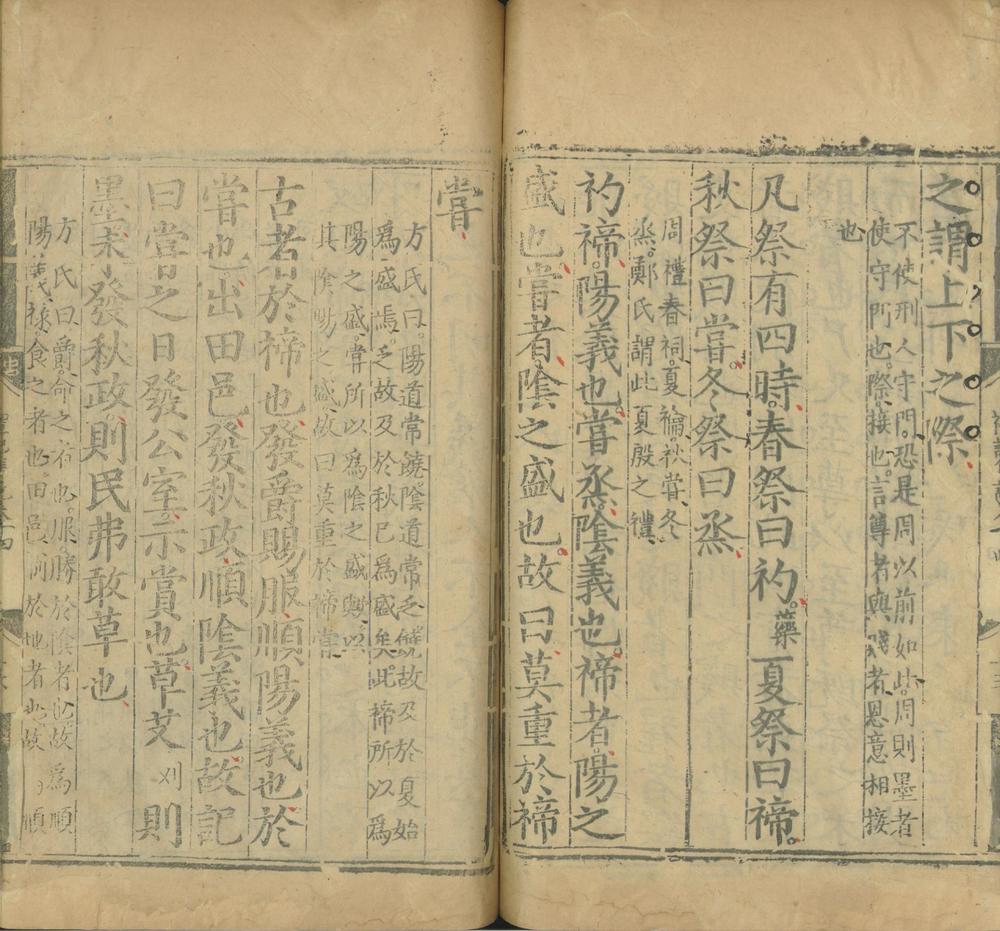 之謂上下之際
不使刑人守門恐是周以前如此周則墨者
使守門也際接也言尊者與賤者恩意相接
也
凡祭有四時春祭曰礿藥夏祭曰禘
秋祭曰嘗冬祭曰烝
周禮春祠夏禴秋嘗冬
烝鄭氏謂此夏殷之禮
礿禘陽義也嘗烝陰義也禘者陽之
盛也嘗者陰之盛也故曰莫重於禘
嘗
方氏曰陽道常饒陰道常乏饒故及於夏始
為盛焉乏故及於秋已為盛矣此禘所以為
陽之盛嘗所以為陰之盛歟以
其陰陽之盛故曰莫重於禘嘗
古者於禘也發爵賜服順陽義也於
嘗也出田邑發秋政順陰義也故記
曰嘗之日發公室示賞也草艾刈則
墨未發秋政則民弗敢草也
方氏曰爵命之者也服勝於陰者也故為順
陽義祿食之者也田邑制於地者也故為順